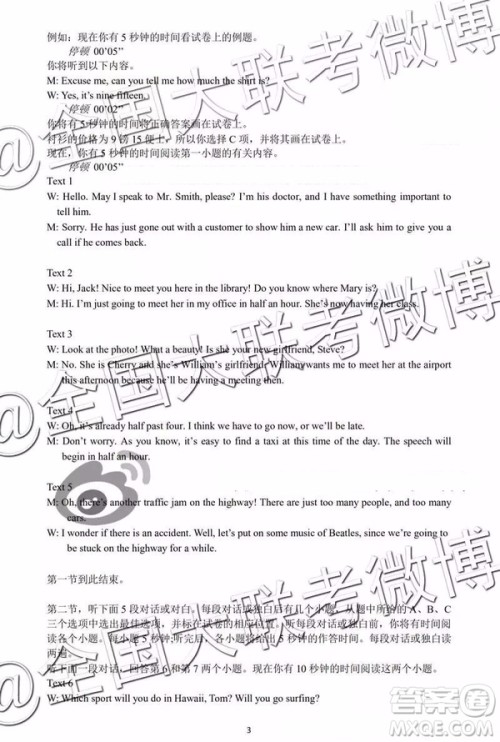 例如：现在你有 5 秒钟的时间看试卷上的例题。
停顿 00’05”
你将听到以下内容。
M: Excuse me, can you tell me how much the shirt is?
W: Yes, it’s nine fifteen.
停顿 00’02”
你将有 5 秒钟的时间将正确答案画在试卷上。
衬衫的价格为 9 镑 15 便士，所以你选择 C 项，并将其画在试卷上。
现在，你有 5 秒钟的时间阅读第一小题的有关内容。
停顿 00’05”
Text 1
W: Hello. May I speak to Mr. Smith, please? I’m his doctor, and I have something important to
tell him.
M: Sorry. He has just gone out with a customer to show him a new car. I’ll ask him to give you a
call if he comes back.
Text 2
W: Hi, Jack! Nice to meet you here in the library! Do you know where Mary is?
M: Hi. I’m just going to meet her in my office in half an hour. She’s now having her class.
Text 3
W: Look at the photo! What a beauty! Is she your new girlfriend, Steve?
M: No. She is Cherry and she’s William’s girlfriend. William wants me to meet her at the airport
this afternoon because he’ll be having a meeting then.
Text 4
W: Oh, it’s already half past four. I think we have to go now, or we’ll be late.
M: Don’t worry. As you know, it’s easy to find a taxi at this time of the day. The speech will
begin in half an hour.
Text 5
M: Oh, there’s another traffic jam on the highway! There are just too many people, and too many
cars.
W: I wonder if there is an accident. Well, let’s put on some music of Beatles, since we’re going to
be stuck on the highway for a while.
第一节到此结束。
第二节，听下面 5 段对话或对白。每段对话或独白后有几个小题，从题中所给的 A、B、C
三个选项中选出最佳选项，并标在试卷的相应位置。听每段对话或独白前，你将有时间阅
读各个小题。每小题 5 秒钟；听完后，各小题将给出 5 秒钟的作答时间。每段对话或独白读
两遍。
听下面一段对话，回答第 6 和第 7 两个小题。现在你有 10 秒钟的时间阅读这两个小题。
Text 6
W: Which sport will you do in Hawaii, Tom? Will you go surfing?
3
@全国大联考微博
@全国大联考微博
@全国大联考微博